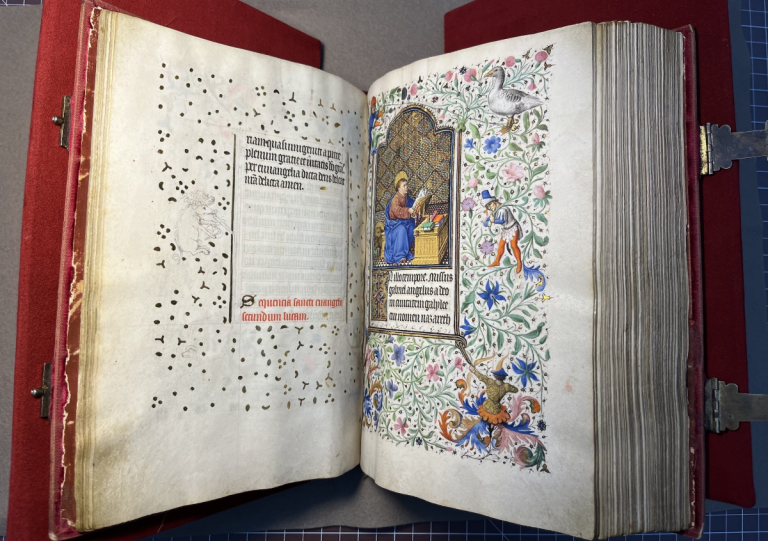 nam quasi unigeniti a patre
plenum gracie et veritatis
Per euuangelia dicta deus deleat
nr̄a delicta amen.
Sequencia sancti euangelii
secundum lucam.
In illo tempore. Missus
gabriel angelus a deo
in ciuitatem galylee
cui nomen nazareth